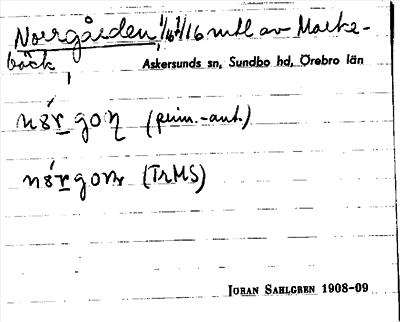 Norrgården, 1/16 mtl av Marke-
bäck,
Askersunds sn, Sundbo hd, Örebro län
(prim.-ant.)
(TrMS)
JORAN SAHLGREN 1908-09